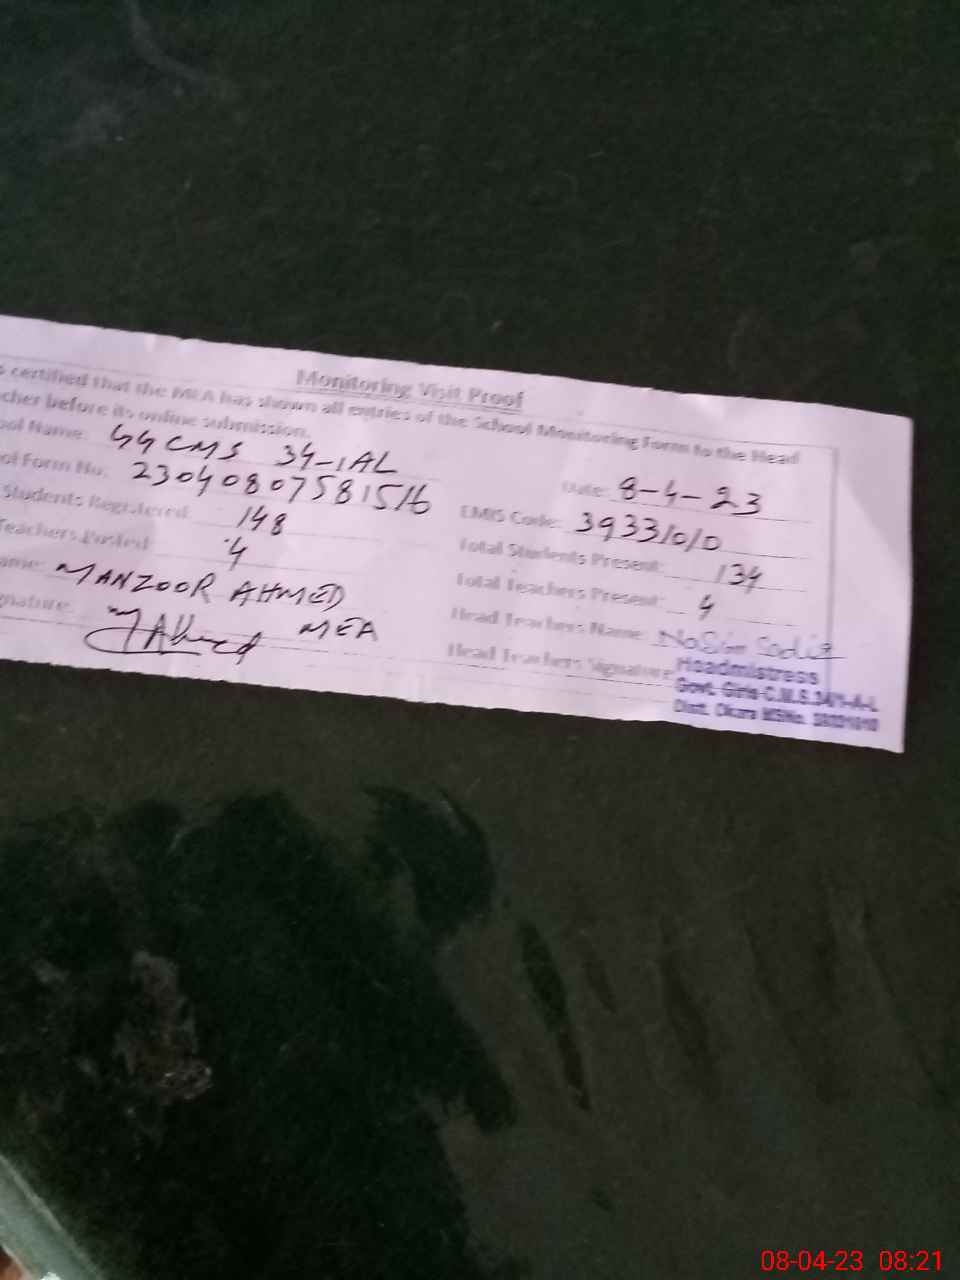 Monitoring Visit Proof
s certified that the MEA has shown all entries of the School Monitoring Form to the Head
cher before its online submission.
ool Name: GGCMS 34-1AL
Date: 8-4-23
ol Form No: 23040807581516
EMIS Code: 39331010
Students Registered: 148
Total Students Present: 134
Teachers Posted: 4
Total Teachers Present: 4
ame: MANZOOR AHMED
Head Teachers Name:
gnature: MEA
Head Teachers Signature
Headmistress
Govt. Girls C.M.S. 34/1-A-L
Distt. Okara
08-04-23 08:21